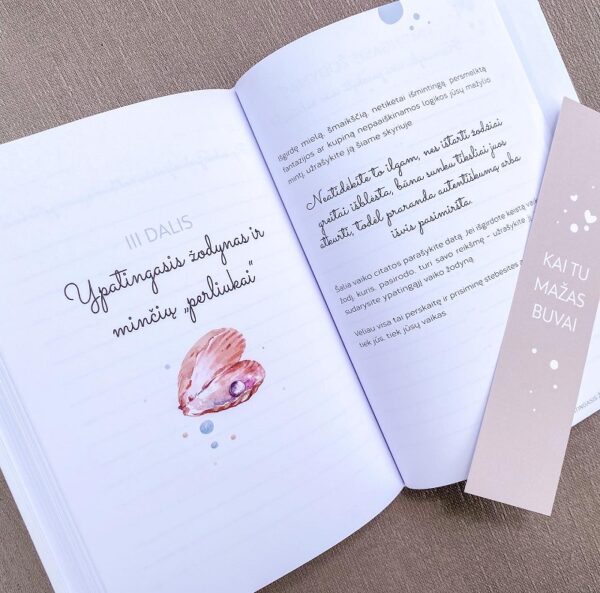 III DALIS
Ypatingasis žodynas ir
minčių „perliukai“
Išgirdę mielą, šmaikščią, netikėtai išmintingą, persmelktą
fantazijos ar kupiną nepaaiškinamos logikos jūsų mažylio
mintį, užrašykite ją šiame skyriuje.
Neatidėkite to ilgam, nes ištarti žodžiai
greitai išblėsta, būna sunku tiksliai juos
atkurti, todėl praranda autentiškumą arba
išvis pasimiršta.
Šalia vaiko citatos parašykite datą. Jei išgirdote keistą
žodį, kuris, pasirodo, turi savo reikšmę – užrašykite
sudarysite ypatingąjį vaiko žodyną.
Vėliau visa tai perskaitę ir prisiminę stebėsitės
tiek jūs, tiek jūsų vaikas.
KAI TU
MAŽAS
BUVAI